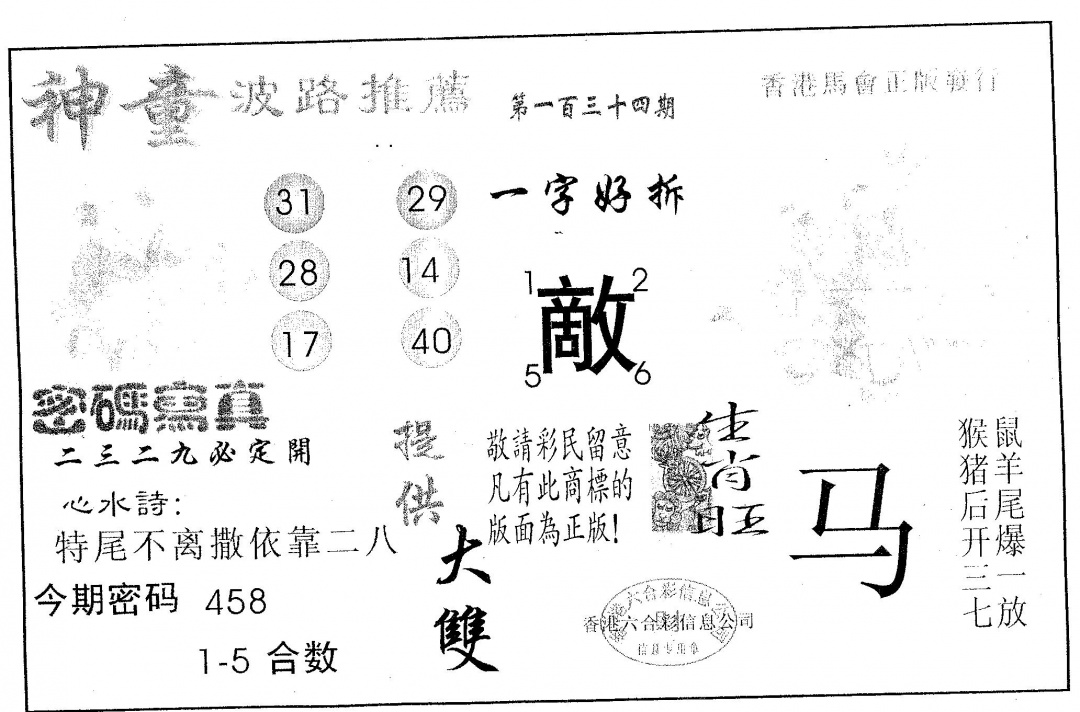 神童波路推薦
第一百三十四期
香港馬會正版發行
31 29
28 14
17 40
一字好拆
1 2
敵
5 6
密碼寫真
二三二九必定開
心水詩:
特尾不离撒依靠二八
今期密码 458
1-5 合数
提供
大雙
敬請彩民留意
凡有此商標的
版面為正版!
生肖旺
马
鼠羊尾爆一放
猴猪后开三七
香港六合彩信息公司